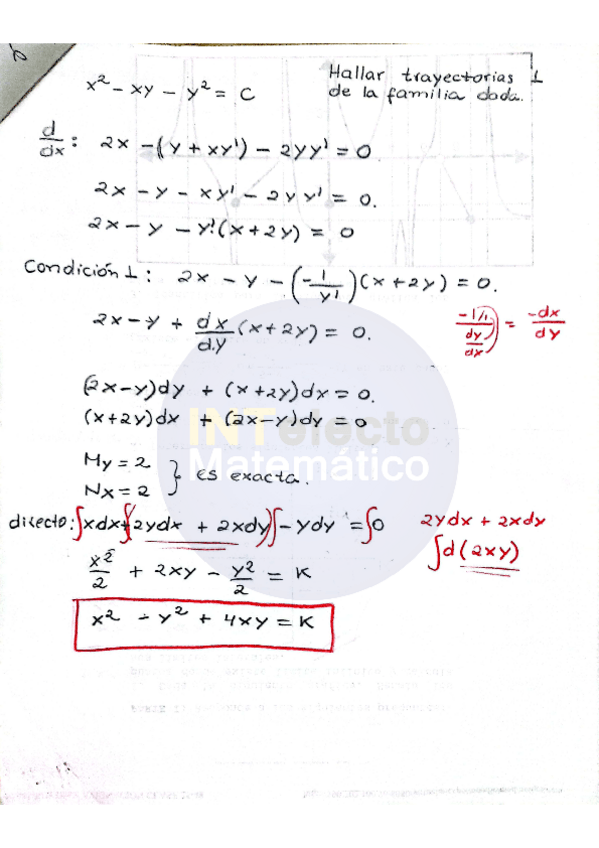 x² - xy - y² = C
Hallar trayectorias ⊥
de la familia dada.
d/dx : 2x - (y + xy') - 2yy' = 0
2x - y - xy' - 2yy' = 0.
2x - y - y'(x + 2y) = 0
Condición ⊥ : 2x - y - (-1/y')(x + 2y) = 0.
2x - y + dx/dy (x + 2y) = 0.
-1/1 / dy/dx = -dx/dy
(2x - y)dy + (x + 2y)dx = 0.
(x + 2y)dx + (2x - y)dy = 0
INTelecto
Matemático
My = 2
Nx = 2 } es exacta.
directo: ∫xdx + ∫(2ydx + 2xdy) ∫- ydy = ∫0
2ydx + 2xdy
∫d(2xy)
x²/2 + 2xy - y²/2 = K
x² - y² + 4xy = K